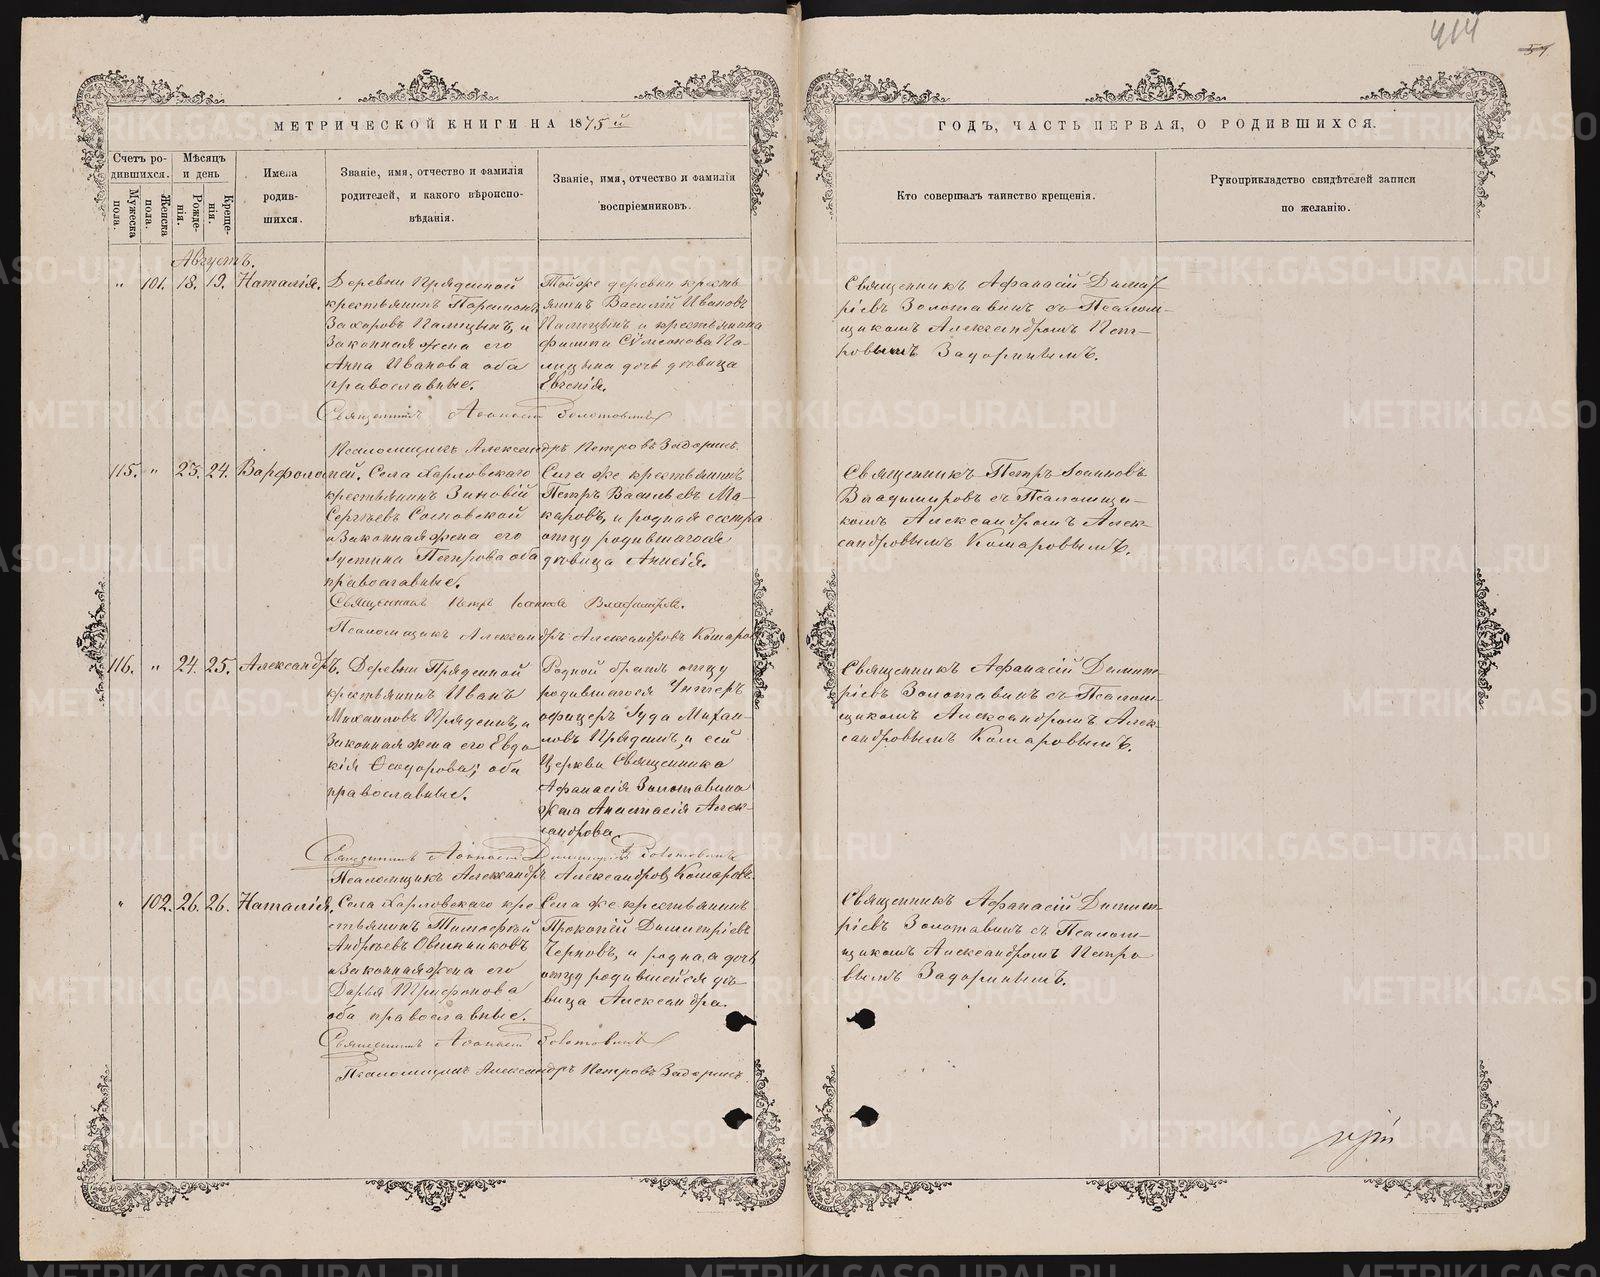 414
МЕТРИЧЕСКОЙ КНИГИ НА 1875 й
ГОДЪ, ЧАСТЬ ПЕРВАЯ, О РОДИВШИХСЯ.
Счетъ ро-
дившихся.
Мужеска
пола.
Женска
пола.
Мѣсяцъ
и день
Рожде-
нія.
Креще-
нія.
Имена
родив-
шихся.
Званіе, имя, отчество и фамилія
родителей, и какого вѣроиспо-
вѣданія.
Званіе, имя, отчество и фамилія
воспріемниковъ.
Кто совершалъ таинство крещенія.
Рукоприкладство свидѣтелей записи
по желанію.
Августъ.
" 101. 18. 19. Наталія.
Деревни Пряденной
крестьянинъ Парамонъ
Захаровъ Палицынъ, и
Законная жена его
Анна Иванова оба
православные.
Тойже деревни кресть-
янинъ Василій Ивановъ
Палицынъ и крестьянина
Филипа Сѵмеонова Па-
лицына дочь дѣвица
Евгенія.
Священникъ Афанасій Димит
ріевъ Золотавинъ съ Псалом-
щикомъ Александромъ Пет-
ровымъ Задоринымъ.
Священникъ Афанасій Золотовинъ
Псаломщикъ Александръ Петровъ Задоринъ.
115. " 23. 24. Варфоломей.
Села Харловскаго
крестьянинъ Зиновій
Сергѣевъ Сосновской
и Законная жена его
Іустина Петрова оба
православные.
Села же крестьянинъ
Петръ Васильевъ Ма-
каровъ, и родная сестра
отцу родившагося
дѣвица Анисія.
Священникъ Петръ Іоанновъ
Владимировъ съ Псаломщи-
комъ Александромъ Алек-
сандровымъ Комаровымъ.
Священникъ Петръ Іоанновъ Владиміровъ.
Псаломщикъ Александръ Александровъ Комаровъ
116. " 24. 25. Александръ.
Деревни Пряденной
крестьянинъ Иванъ
Михаиловъ Пряденъ, и
Законная жена его Евдо-
кія Ѳеодорова; оба
православные.
Родной братъ отцу
родившагося Унтеръ
офицеръ Іуда Михаи-
ловъ Пряденъ, и сей
Церкви Священника
Афанасія Золотавина
жена Анастасія Алек-
сандрова.
Священникъ Афанасій Димит-
ріевъ Золотавинъ съ Псалом-
щикомъ Александромъ Алек-
сандровымъ Комаровымъ.
Священникъ Афанасій Димитріевъ Золотовинъ
Псаломщикъ Александръ Александровъ Комаровъ.
" 102. 26. 26. Наталія.
Села Харловскаго кре-
стьянинъ Тимофей
Андреевъ Овчинниковъ
и Законная жена его
Дарья Трифонова
оба православные.
Села же крестьянинъ
Прокопій Димитріевъ
Черновъ, и родная дочь
отцу родившейся дѣ-
вица Александра.
Священникъ Афанасій Димит-
ріевъ Золотавинъ съ Псалом-
щикомъ Александромъ Петро
вымъ Задоринымъ.
Священникъ Афанасій Золотовинъ
Псаломщикъ Александръ Петровъ Задоринъ
METRIKI.GASO-URAL.RU